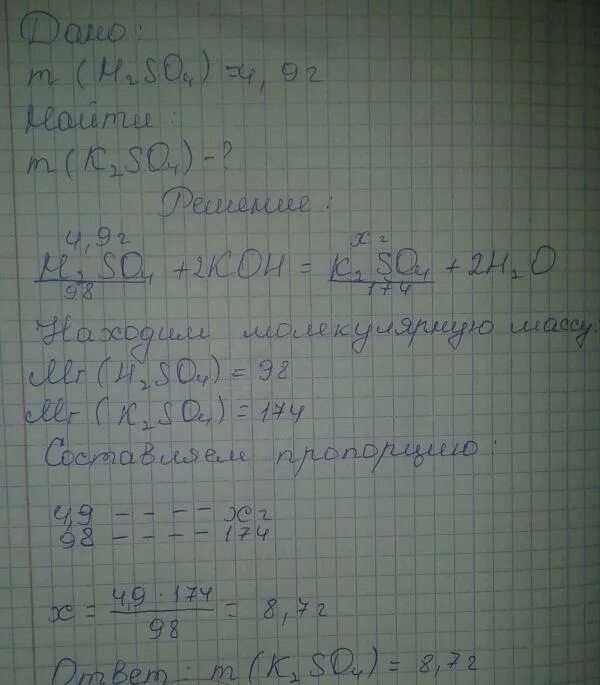 Дано:
m (H₂SO₄) = 4,9г
Найти:
m (K₂SO₄) - ?
Решение:
4,9г xг
H₂SO₄ + 2KOH = K₂SO₄ + 2H₂O
98 174
Находим молекулярную массу:
Mr (H₂SO₄) = 98
Mr (K₂SO₄) = 174
Составляем пропорцию:
4,9 - - - - xг
98 - - - - 174
x = 4,9 · 174 / 98 = 8,7г
Ответ: m (K₂SO₄) = 8,7г